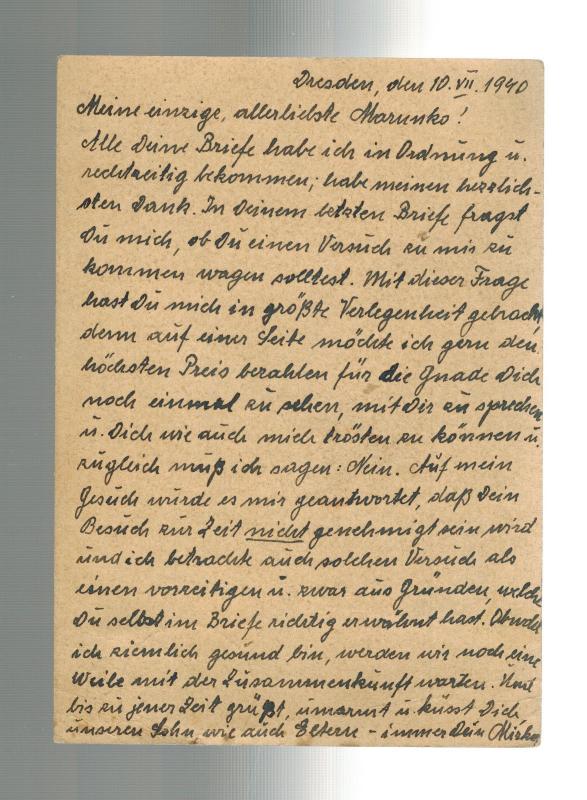 Dresden, den 10.VII.1940
Meine einzige, allerliebste Marunko!
Alle Deine Briefe habe ich in Ordnung u.
rechtzeitig bekommen; habe meinen herzlich-
sten Dank. In Deinem letzten Briefe fragst
Du mich, ob Du einen Versuch zu mir zu
kommen wagen solltest. Mit dieser Frage
hast Du mich in größte Verlegenheit gebracht,
denn auf einer Seite möchte ich gern den
höchsten Preis bezahlen für die Gnade Dich
noch einmal zu sehen, mit Dir zu sprechen
u. Dich wie auch mich trösten zu können u.
zugleich muß ich sagen: Nein. Auf mein
Gesuch wurde es mir geantwortet, daß Dein
Besuch zur Zeit nicht genehmigt sein wird
und ich betrachte auch solchen Versuch als
einen vorzeitigen u. zwar aus Gründen, welche
Du selbst im Briefe richtig erwähnt hast. Obwohl
ich ziemlich gesund bin, werden wir noch eine
Weile mit der Zusammenkunft warten. Und
bis zu jener Zeit grüßt, umarmt u. küsst Dich,
unseren Sohn, wie auch Eltern - immer Dein Mirko.